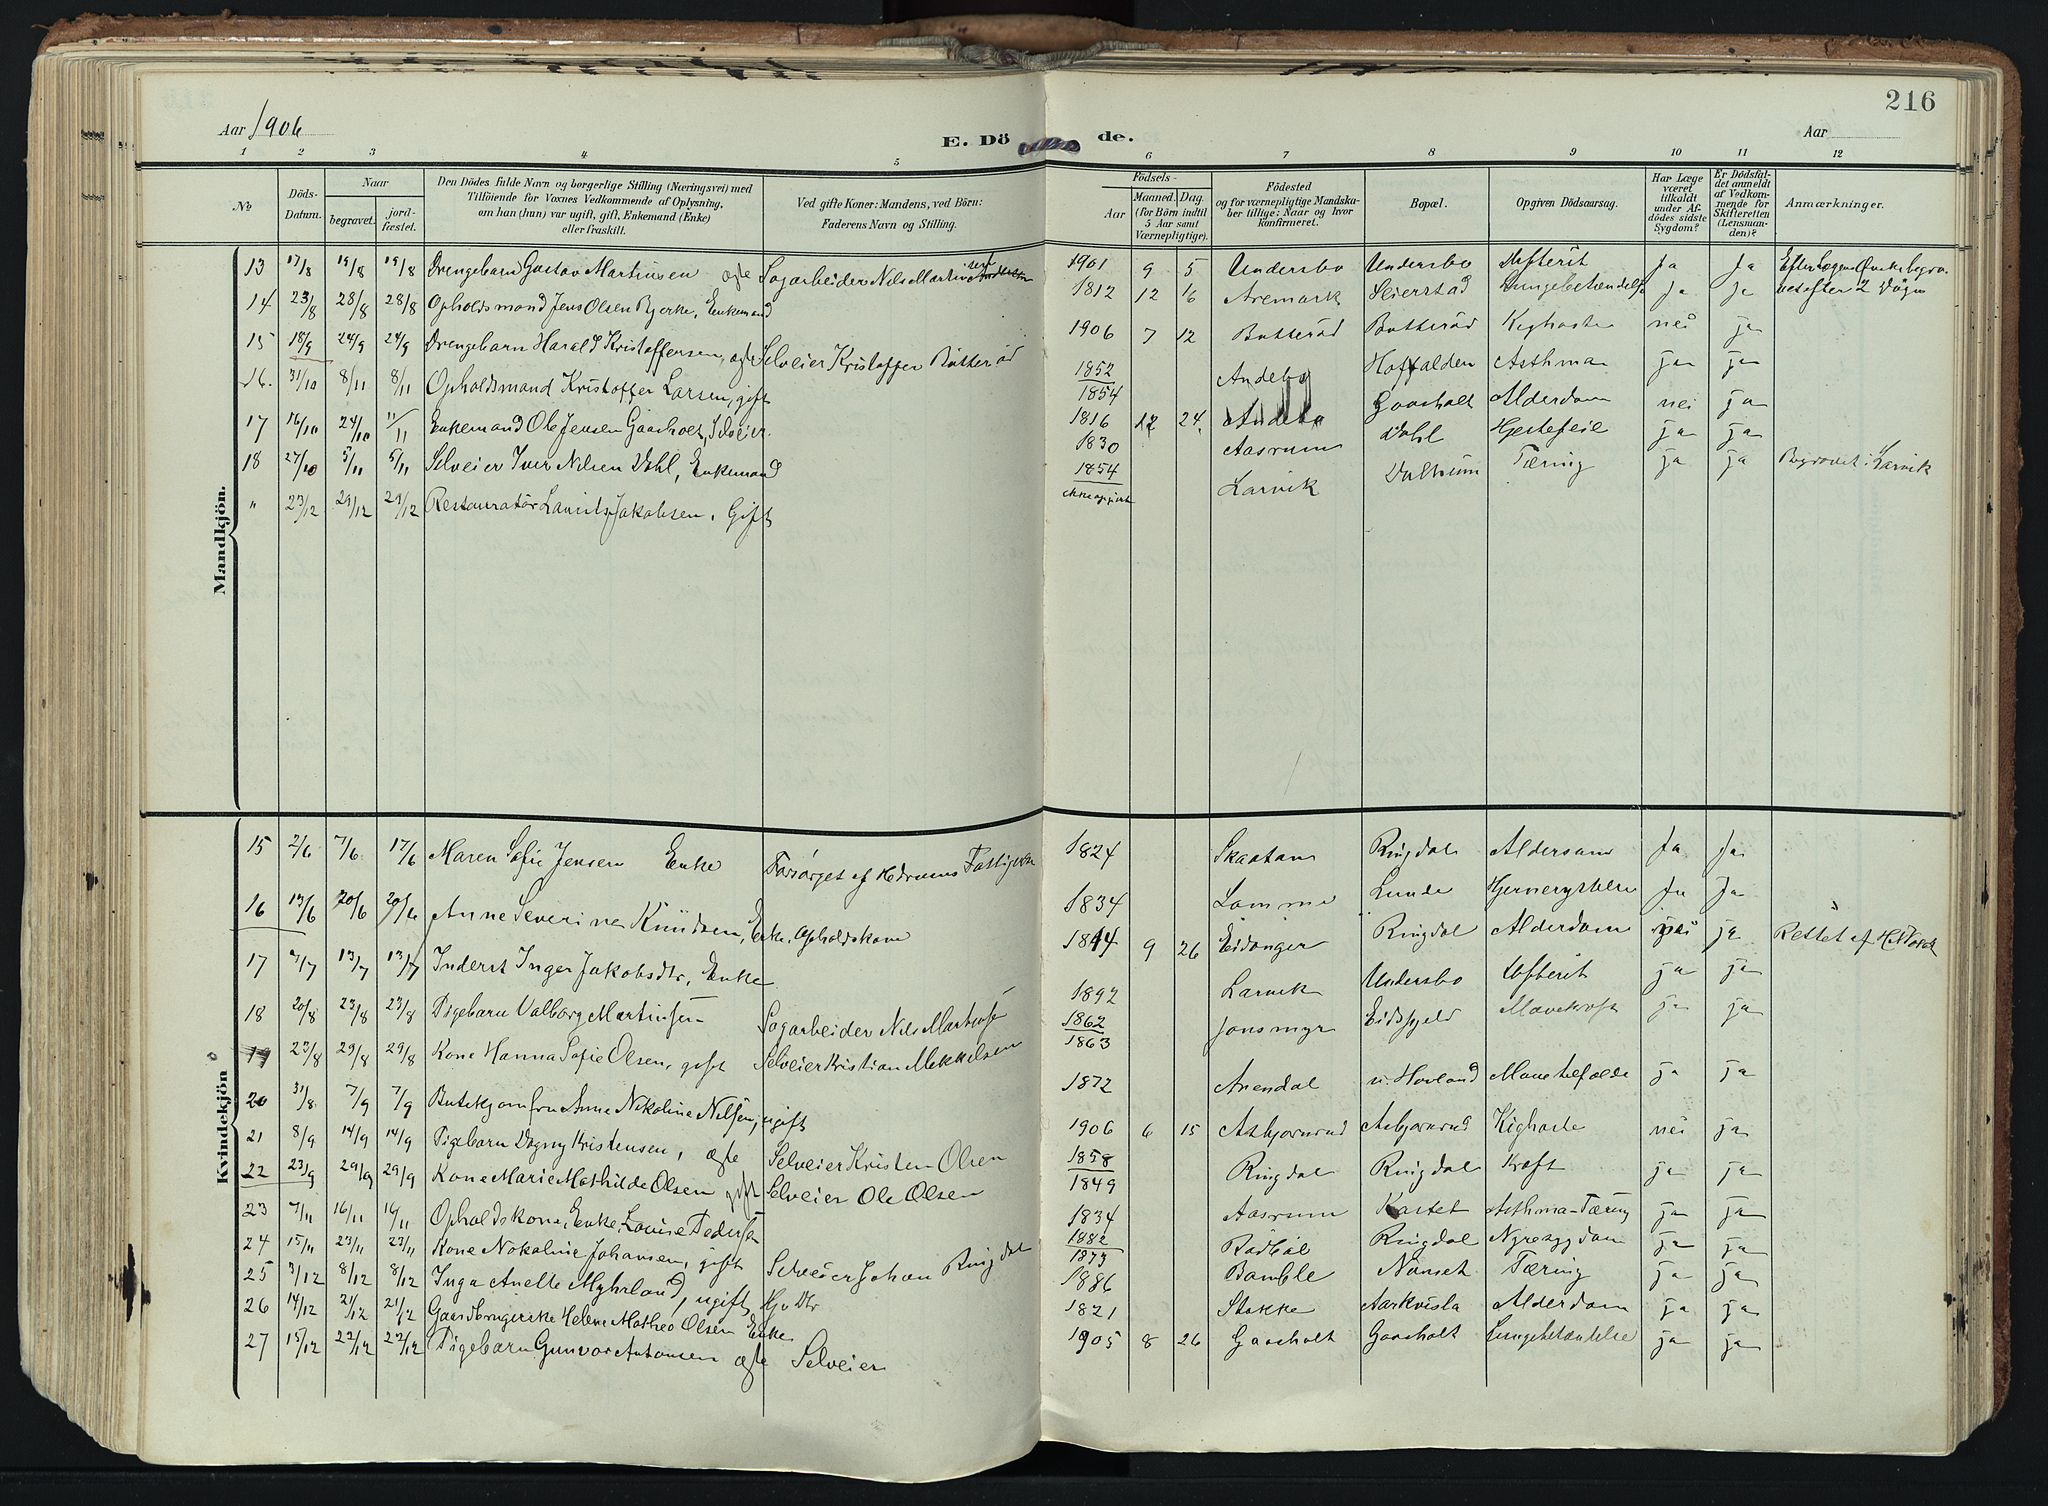 216
Aar 1906
E. Dö de.
Aar
1 2 3 4 5 6 7 8 9 10 11 12
No
Döds-Datum.
Naar
begravet.
jord-fæstet.
Den Dödes fulde Navn og borgerlige Stilling (Næringsvei) med
Tilföiende for Voxnes Vedkommende af Oplysning,
om han (hun) var ugift, gift, Enkemand (Enke)
eller fraskilt.
Ved gifte Koner: Mandens, ved Börn:
Faderens Navn og Stilling.
Födsels-
Aar
Maaned. Dag.
(for Börn indtil
5 Aar samt
Værnepligtige).
Födested
og for værnepligtige Mandska-
ber tillige: Naar og hvor
konfirmeret.
Bopæl.
Opgiven Dödsaarsag.
Har Læge
været
tilkaldt
under Af-
dödes sidste
Sygdom?
Er Dödsfal-
det anmeldt
af Vedkom-
mende for
Skifteretten
(Lensman-
den)?
Anmærkninger.
Mandkjön.
13 17/8 19/8 19/8 Drengebarn Gustav Martinsen ægte Sagarbeider Nils Martinsen 1901 9 5 Undersbo Undersbo Difterit Ja Ja
14 23/8 28/8 28/8 Opholdsmand Jens Olsen Bjerke, Enkemand 1812 12 16 Aremark Seierstad Lungebetændelse Ja Ja
15 18/9 24/9 24/9 Drengebarn Harald Kristoffersen, ægte Selveier Kristoffer Butteröd 1906 7 12 Butteröd Butteröd Kighoste nei ja
16. 31/10 8/11 8/11 Opholdsmand Kristoffer Larsen, gift 1852 1854 Andebo Hoffalden Asthma ja ja
17 16/10 24/10 11/11 Enkemand Ole Jensen Gaasholt, Selveier. 1816 12 24. Andebo Gaasholt Alderdom nei ja
18 27/10 5/11 5/11 Selveier Iver Nilsen Dahl, Enkemand 1830 Aasrum Dahl Hjertefeil ja ja
" 23/12 29/12 29/12 Restauratör Laurits Jakobsen, Gift 1854 Larvik Tæring ja ja Begravet i Larvik
Kvindekjön
15 2/6 7/6 17/6 Maren Sofie Jensen Enke Forsörget af Hedrums Fattigv. 1824 Skaatam Ringdal Ja Ja
16 13/6 20/6 20/6 Anne Severine Knudsen, Enke, Opholdskone 1834 Lamme Lunde Hjernerystelse Ja Ja
17 7/7 13/7 13/7 Inderst Inger Jakobsdtr, Enke 1844 9 26 Eidanger Ringdal Alderdom nei ja Rettet af
18 20/8 23/8 23/8 Pigebarn Valborg Martinsen Sagarbeider Nils Martinsen 1892 Larvik Undersbo Difterit ja ja
19 23/8 29/8 29/8 Kone Hanna Sofie Olsen, gift Selveier Kristian Mekkelsen 1862 1863 Jonsmyr Eidsfjeld Mavekræft ja ja
20 31/8 7/9 7/9 Butikjomfru Anne Nikoline Nilsen, ugift 1872 Arendal n. Hovland ja ja
21 8/9 14/9 14/9 Pigebarn Dagny Kristensen, ægte Selveier Kristen Olsen 1906 6 15 Asbjørnrud Asbjørnrud Kighoste nei ja
22 23/9 29/9 29/9 Kone Marie Mathilde Olsen gift Selveier Ole Olsen 1858 1849 Ringdal Ringdal Kræft ja ja
23 7/11 16/11 16/11 Opholdskone, Enke, Louise Pedersen 1834 Aasrum Kastet Asthma-Tæring ja ja
24 15/11 23/11 23/11 Kone Nokoline Johansen, gift Selveier Johan Ringdal 1882 1873 Rödböl Ringdal Nyresygdom ja ja
25 3/12 8/12 8/12 Inga Anette Myhrland, ugift 1886 Bamble Nanset Tæring ja ja
26 14/12 21/12 21/12 Gaardbrugerske Helene Mathea Olsen Enke 1821 Stokke Aarkvisla Alderdom ja ja
27 15/12 22/12 22/12 Pigebarn Gunvor Antonsen ægte Selveier 1905 8 26 Gaasholt Gaasholt Lungebetændelse ja ja